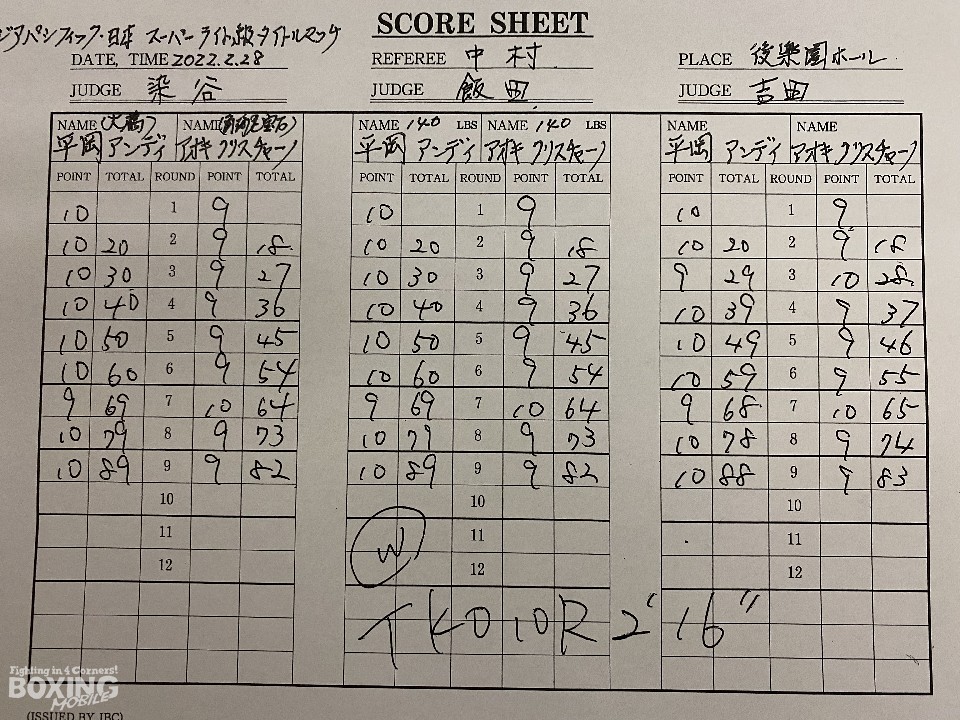 SCORE SHEET
ジアパシフィック・日本 スーパーライト級タイトルマッチ
DATE, TIME 2022.2.28 REFEREE 中村 PLACE 後樂園ホール
JUDGE 染谷 JUDGE 飯田 JUDGE 吉田
NAME (大橋) NAME NAME 140 LBS NAME 140 LBS NAME NAME
平岡 アンディ アオキ クリスチャーノ 平岡 アンディ アオキ クリスチャーノ 平岡 アンディ アオキ クリスチャーノ
POINT TOTAL ROUND POINT TOTAL POINT TOTAL ROUND POINT TOTAL POINT TOTAL ROUND POINT TOTAL
10 1 9 10 1 9 10 1 9
10 20 2 9 18 10 20 2 9 18 10 20 2 9 18
10 30 3 9 27 10 30 3 9 27 9 29 3 10 28
10 40 4 9 36 10 40 4 9 36 10 39 4 9 37
10 50 5 9 45 10 50 5 9 45 10 49 5 9 46
10 60 6 9 54 10 60 6 9 54 10 59 6 9 55
9 69 7 10 64 9 69 7 10 64 9 68 7 10 65
10 79 8 9 73 10 79 8 9 73 10 78 8 9 74
10 89 9 9 82 10 89 9 9 82 10 88 9 9 83
10 10 10
11 W 11 11
12 12 12
TKO 10R 2' 16"
Fighting in 4 Corners!
BOXING
MOBILE
(ISSUED BY JBC)